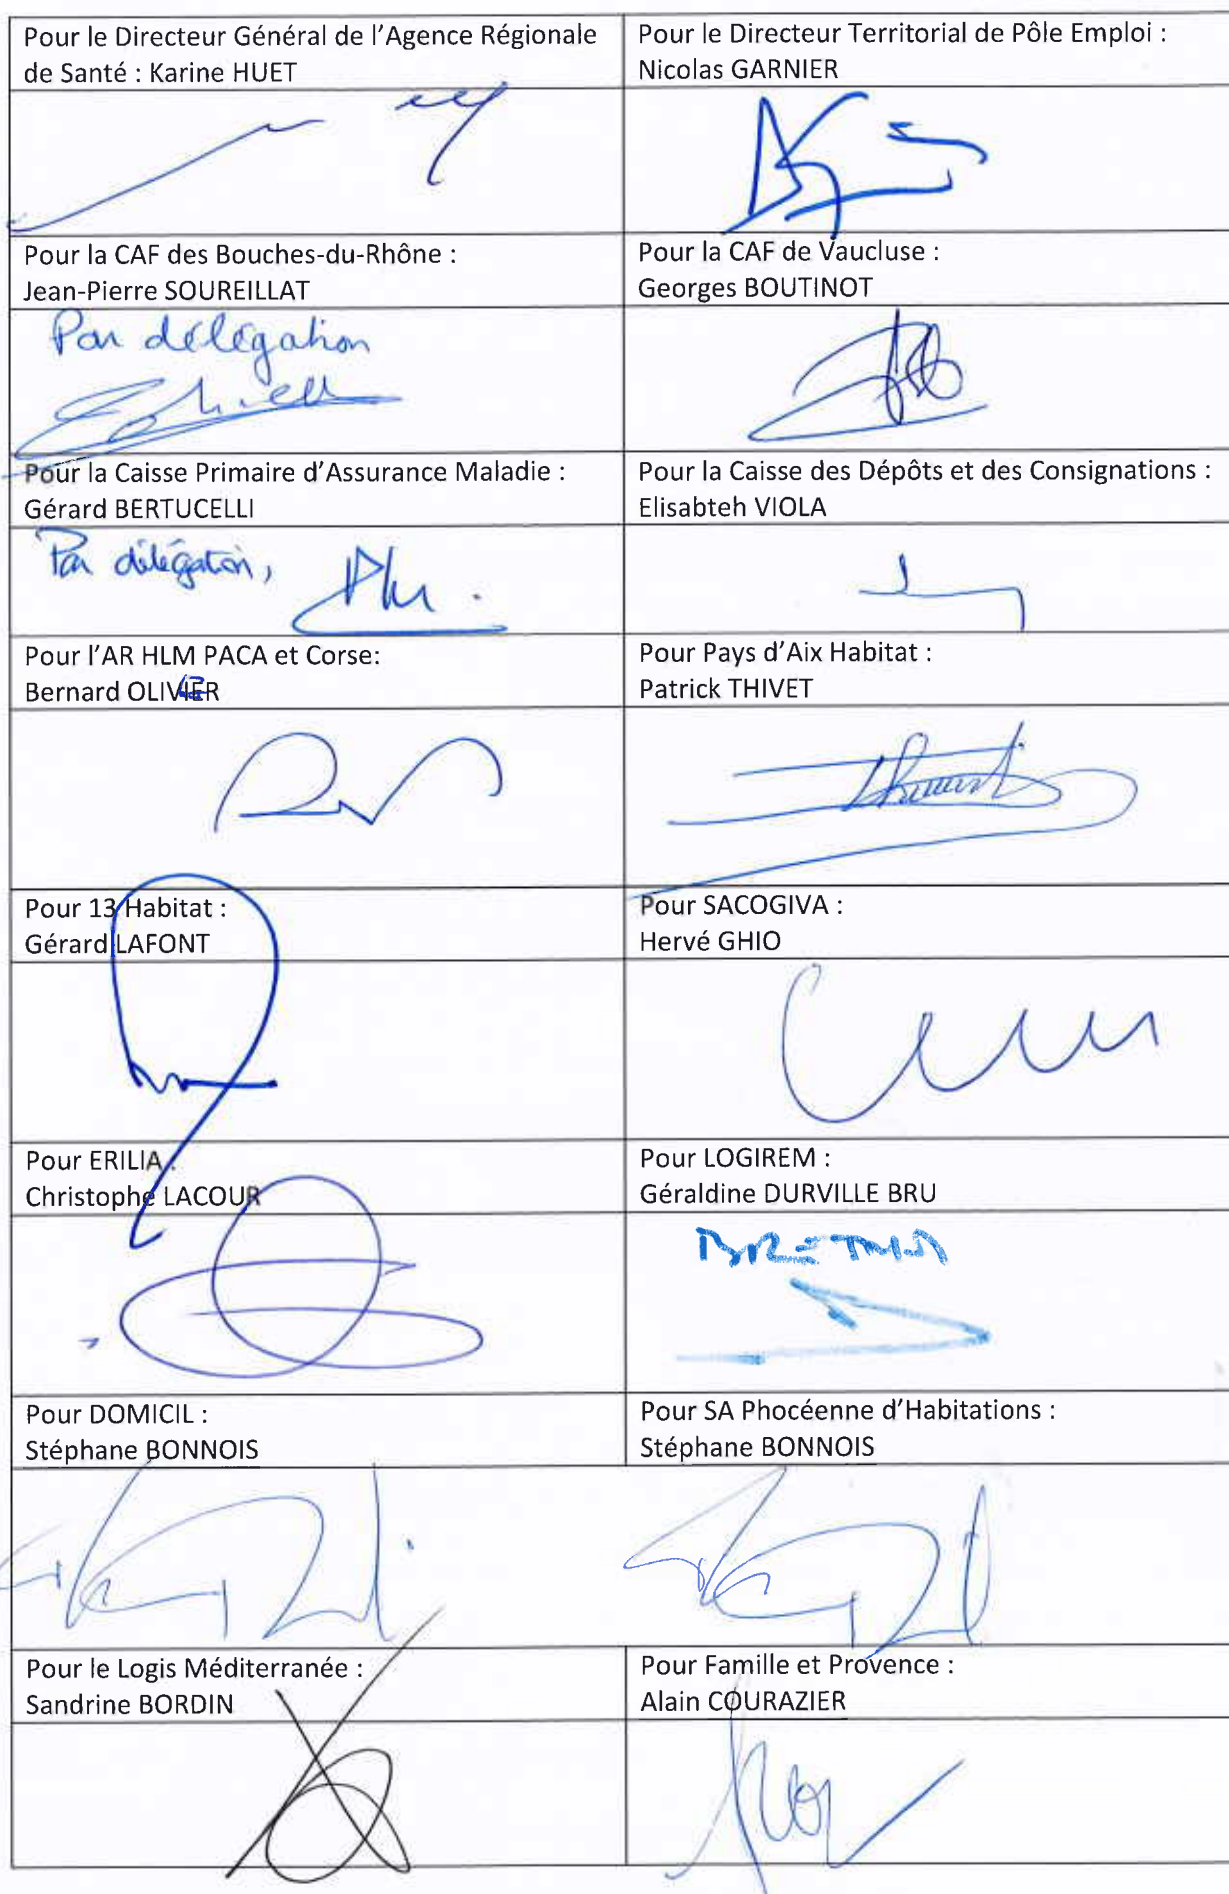 Pour le Directeur Général de l'Agence Régionale
de Santé : Karine HUET
Pour le Directeur Territorial de Pôle Emploi :
Nicolas GARNIER
Pour la CAF des Bouches-du-Rhône :
Jean-Pierre SOUREILLAT
Pour la CAF de Vaucluse :
Georges BOUTINOT
Par délégation
Pour la Caisse Primaire d'Assurance Maladie :
Gérard BERTUCELLI
Pour la Caisse des Dépôts et des Consignations :
Elisabteh VIOLA
Par délégation,
Pour l'AR HLM PACA et Corse:
Bernard OLIVIER
Pour Pays d'Aix Habitat :
Patrick THIVET
Pour 13 Habitat :
Gérard LAFONT
Pour SACOGIVA :
Hervé GHIO
Pour ERILIA :
Christophe LACOUR
Pour LOGIREM :
Géraldine DURVILLE BRU
Pour DOMICIL :
Stéphane BONNOIS
Pour SA Phocéenne d'Habitations :
Stéphane BONNOIS
Pour le Logis Méditerranée :
Sandrine BORDIN
Pour Famille et Provence :
Alain COURAZIER